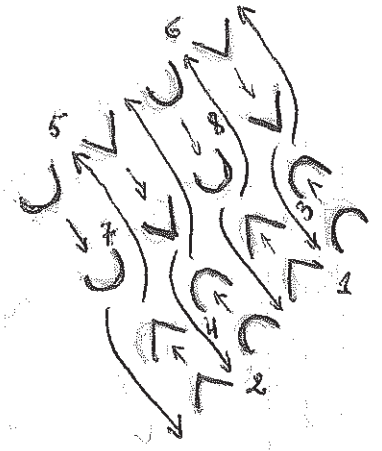 6
5
8
7
3
1
4
2